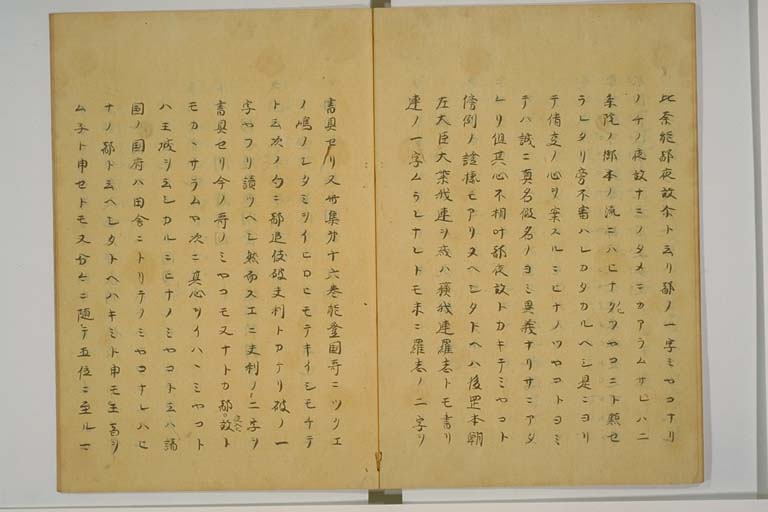 比奈能都夜故余ト云リ都ノ一字ミヤコナリ
ノチノ夜故ナニノタメニカアラムサレハ二
条院ノ御本ノ流ニハヒナノツヤコニト点セ
ラレタリ旁不審ハレカタカルヘシ是ニヨリ
テ倩変ノ心ヲ案スルニヒナノツヤコトヨミ
テハ誠ニ真名仮名ノヨミ異義ナリサニアタ
レリ但其心不相叶都夜故トカキテミヤコト
傍例ノ證據モアリヌヘシタトヘハ後罡本朝
左大臣大蘇我連ヲ或ハ蘓我連羅志トモ書リ
連ノ一字ムラシナレトモ末ニ羅志ノ二字ヲ
書具セリ又廿集第十六巻能登国哥ニツクエ
ノ嶋ノシタミヲイヒロヒモテキイシモチテ
ト云次ノ句ニ都追伎破夫利トカケリ破ノ一
字ヤフリ読ツヘシ然而スエニ夫利ノ二字ヲ
書具セリ今ノ哥ノミヤコモ又ナトカ都故ト
モカヽサラムヤ次ニ其心ヲイハヽミヤコト
ハ王城ヲ云シカルニヒナノミヤコト云ハ諸
国ノ国府ハ田舎ニトリテノミヤコナレハヒ
ナノ都ト云ヘシタトヘハキミト申モ王ヲ
ム子ト申セドモ又分々ニ随テ五位ニ至ルマ